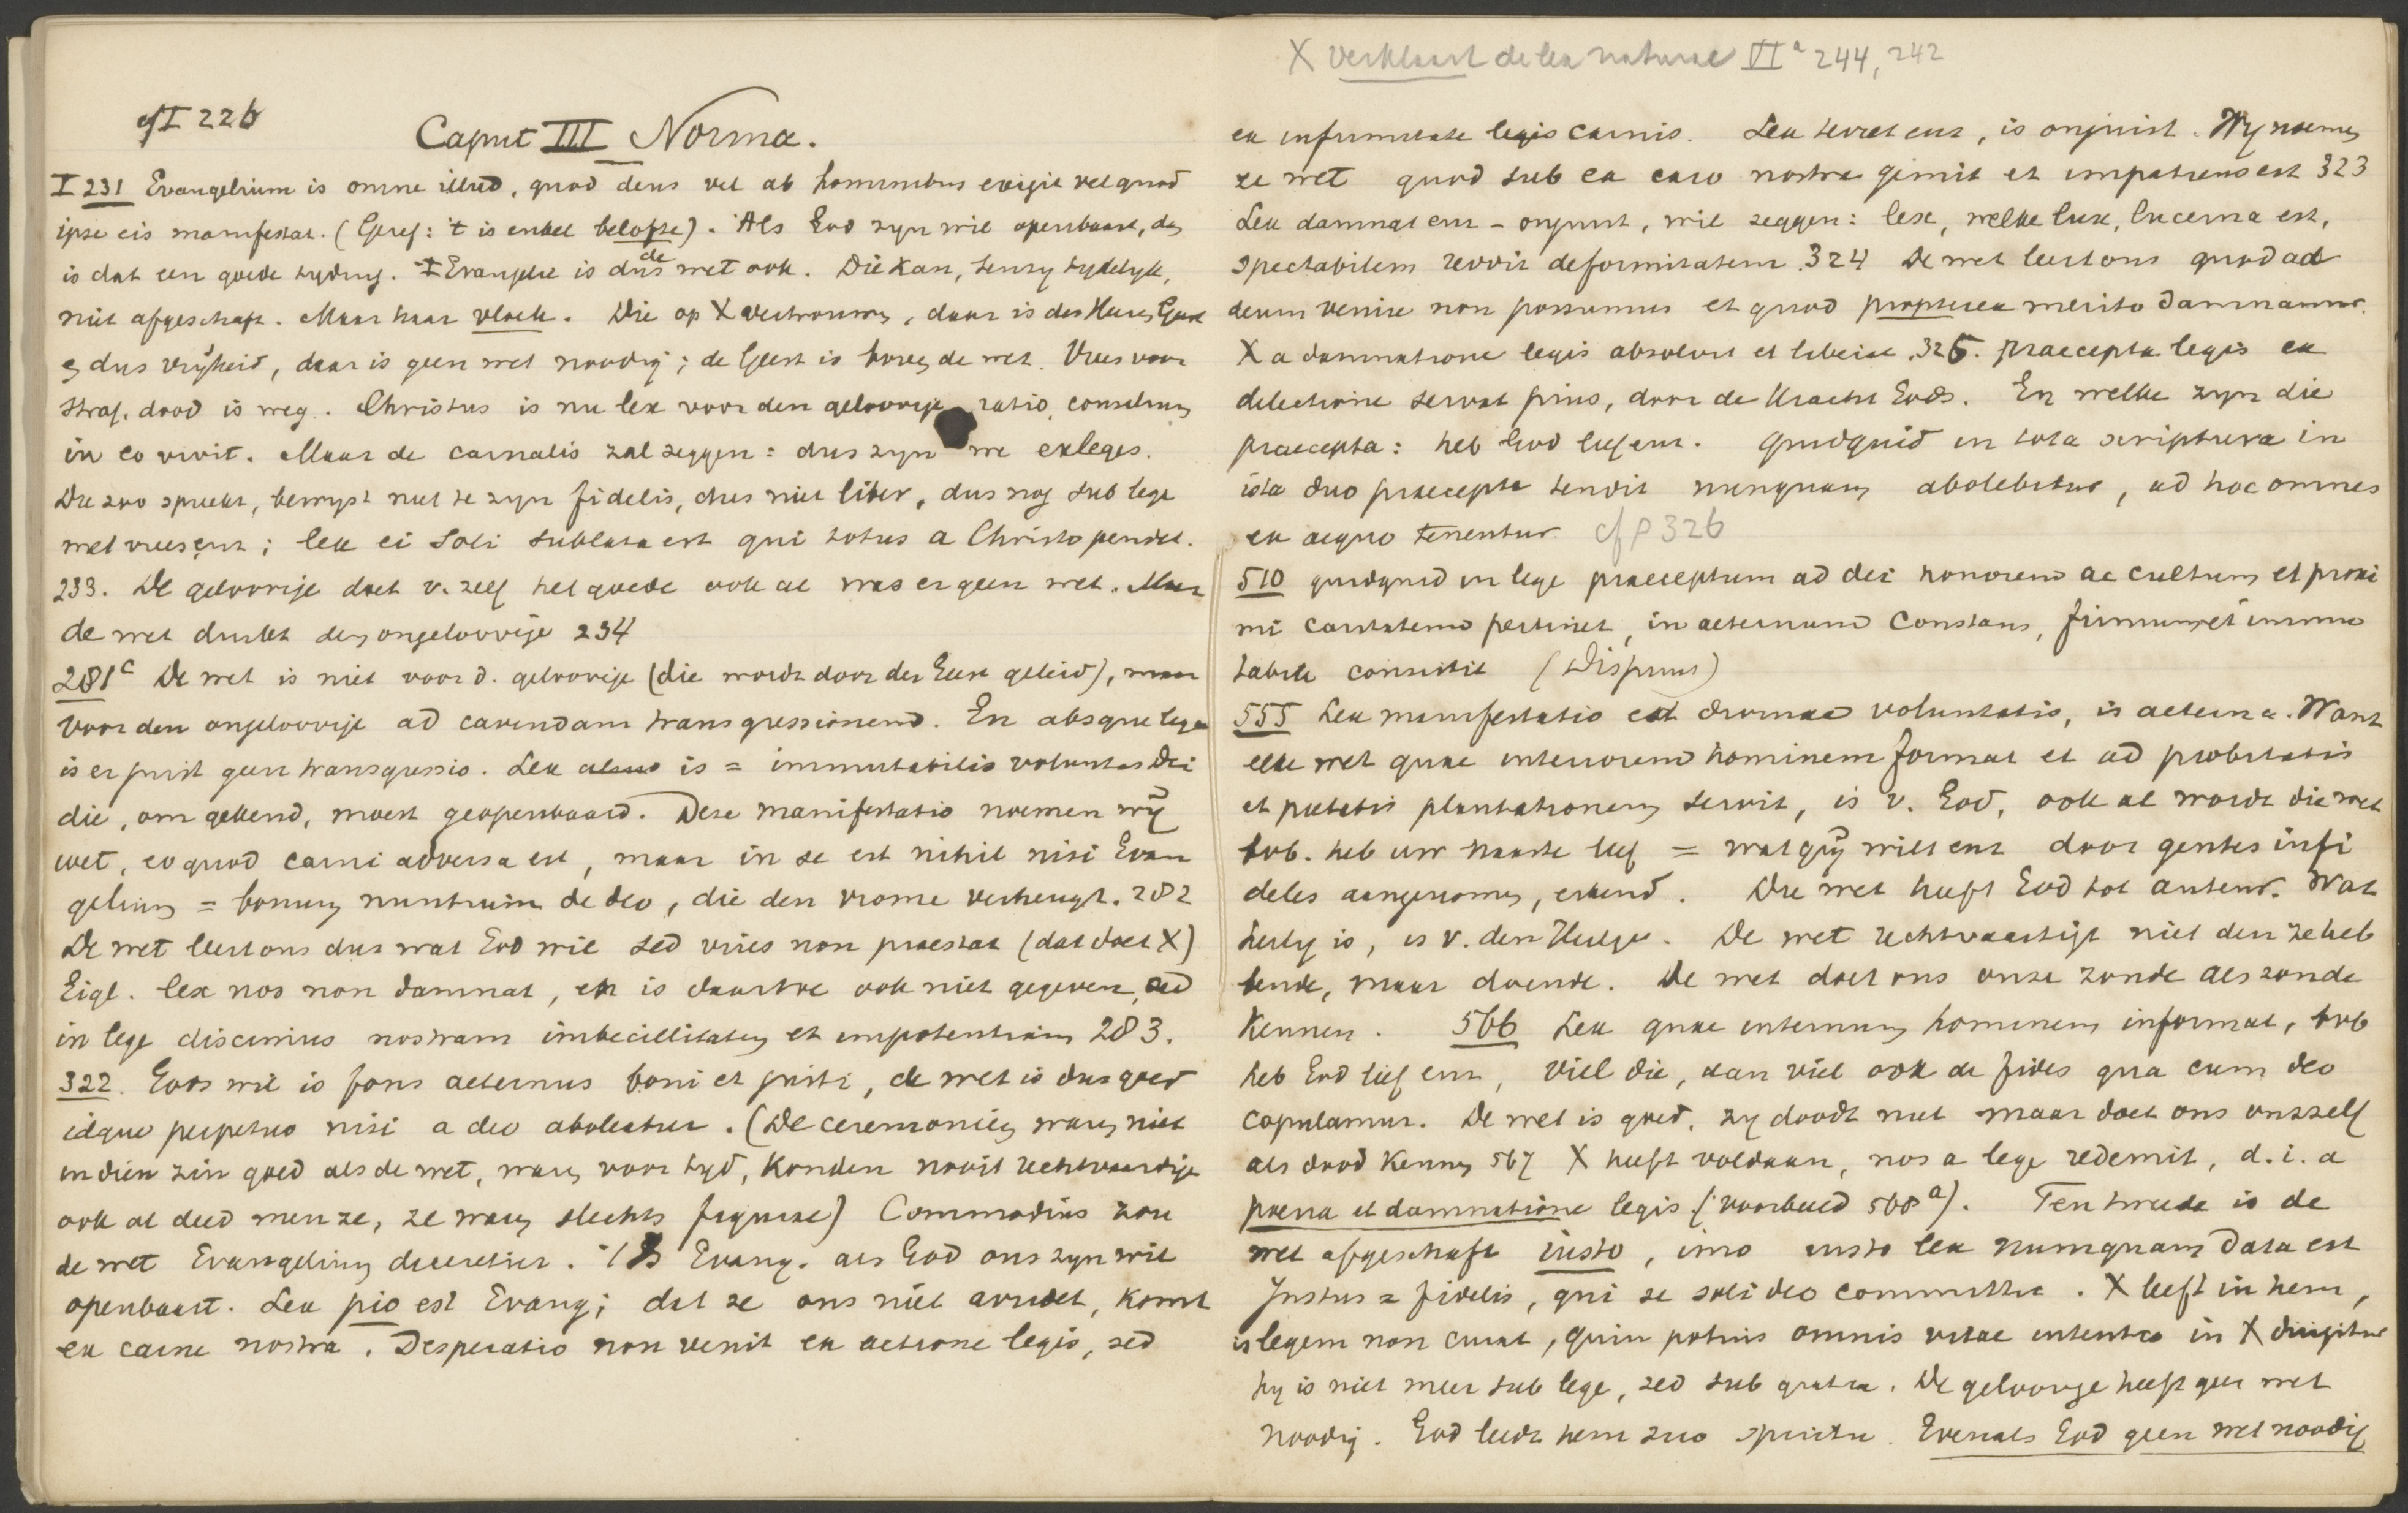 cf I 226
Caput III Norma.
I 231 Evangelium is omne illud, quod deus vel ab hominibus exigit vel quod
ipse eis manifestat. (Geref: 't is enkel belofte). Als God zyn wil openbaart, dan
is dat een goede tyding. 't Evangelie is dus de wet ook. Die kan, tenzy tydelyk,
niet afgeschaft. Maar haar vloek. Die op X vertrouwen, daar is des Heeren Geest
en dus vrijheid, daar is geen wet noodig; de Geest is boven de wet. Vrees voor
straf, dood is weg. Christus is nu lex voor den geloovige, ratio, consilium
in eo vivit. Maar de carnalis zal zeggen: dus zyn we exleges.
Die zoo spreekt, bewyst niet te zyn fidelis, dus niet liber, dus nog sub lege
met vrees enz; lex ei soli sublata est qui totus a Christo pendet.
233. De geloovige doet v. zelf het goede ook al was er geen wet. Maar
de wet drukt den ongeloovige 234
281c De wet is niet voor d. geloovige (die wordt door den Geest geleid), maar
voor den ongeloovige ad cavendam transgressionem. En absque lege
is er juist geen transgressio. Lex is = immutabilis voluntas Dei
die, om gekend, moest geopenbaard. Deze manifestatio noemen wij
wet, eo quod carni adversa est, maar in se est nihil nisi Evan
gelium = bonum nuntium de deo, die den vrome verheugt. 282
De wet leert ons dus wat God wil sed vires non praestat (dat doet X)
Eigl. lex nos non damnat, en is daartoe ook niet gegeven, sed
in lege discimus nostram imbecillitatem et impotentiam 283.
322. Gods wil is fons aeternus boni et justi, de wet is dus goed
idque perpetuo nisi a deo aboleatur. (De ceremoniën waren niet
in dien zin goed als de wet, waren voor tyd, konden nooit rechtvaardige
ook al deed men ze, ze waren slechts figurae) Commodius zou
de wet Evangelium diceretur. 't Is Evang. als God ons zyn wil
openbaart. Lex pio est Evang; dat ze ons niet arridet, komt
ex carne nostra. Desperatio non venit ex actione legis, sed
X verklaart de lex naturae II a 244, 242
ex infirmitate legis carnis. Lex terret enz, is onjuist. Wy noemen
ze wet quod sub ea caro nostra gemit et impatiens est 323
Lex damnat enz - onjuist, wil zeggen: lex, welke lux, lucerna est,
spectabilem reddit deformitatem. 324 De wet leert ons quod ad
deum venire non possumus et quod propterea merito damnamur.
X a damnatione legis absolvit et liberat. 325. praecepta legis ex
dilectione servat pius, door de kracht Gods. En welke zyn die
praecepta: heb God lief enz. Quidquid in tota scriptura in
ista duo praecepta tendit nunquam abolebitur, ad hoc omnes
ex aequo tenentur. cf p 326
510 quidquid in lege praeceptum ad dei honorem ac cultum et proxi
mi caritatem pertinet, in aeternum constans, firmum et immu
tabile consistit (Dispuut)
555 Lex manifestatio est divinae voluntatis, is aeterna. Want
elke wet quae interiorem hominem format et ad probitatis
et pietatis plantationem servit, is v. God, ook al wordt die wet
bvb. heb uw naaste lief = wat gij wilt enz door gentes infi
deles aangenomen, erkend. Die wet heeft God tot auteur. Wat
heilig is, is v. den Heilige. De wet rechtvaardigt niet den ze heb
bende, maar doende. De wet doet ons onze zonde als zonde
kennen. 566 Lex quae internum hominem informat, bvb
heb God lief enz, viel die, dan viel ook de fides qua cum deo
copulamur. De wet is goed, zy doodt niet maar doet ons onszelf
als dood kennen 567 X heeft voldaan, nos a lege redemit, d.i. a
poena et damnatione legis (voorbeeld 568a). Ten tweede is de
wet afgeschaft iusto, imo iusto lex numquam data est
Justus = fidelis, qui se soli deo committit. X leeft in hem,
is legem non curat, quin potius omnis vitae intentio in X dirigitur
hy is niet meer sub lege, sed sub gratia. De geloovige heeft geen wet
noodig. God leidt hem suo spiritu. Evenals God geen wet noodig